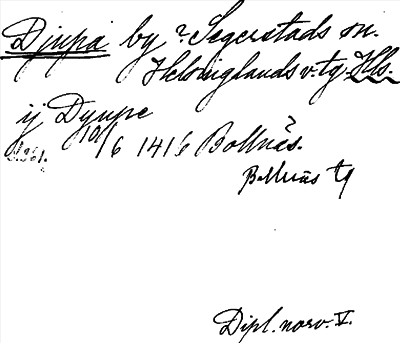 Djupa by ? Segerstads sn.
Helsinglands v. tg. Hls.
ij Dyupe
10/6 1416 Bollnäs.
Bollnäs tg
Dipl. norv. V.